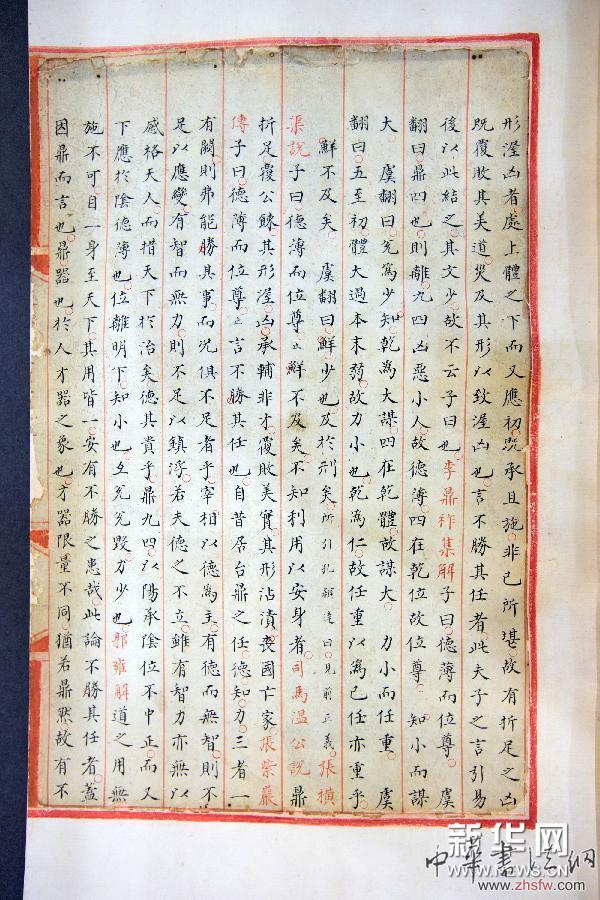 形渥凶者處上體之下而又應初既承且施非己所堪故有折足之凶
既覆敗其美道災及其形以致渥凶也言不勝其任者此夫子之言引易
後以此結之其文少故不云子曰也李鼎祚集解子曰德薄而位尊 虞
翻曰鼎四也則離九四凶惡小人故德薄四在乾位故位尊 知小而謀
大 虞翻曰兌為少知乾為大謀四在乾體故謀大 力小而任重 虞
翻曰五至初體大過本末弱故力小也乾為仁故任重以為己任亦重乎
鮮不及矣 虞翻曰鮮少也及於刑矣所引孔穎達曰見前正義張橫
渠說子曰德薄而位尊至鮮不及矣不知利用以安身者司馬溫公說鼎
折足覆公餗其形渥凶承輔非才覆敗美實其形沾漬喪國亡家張紫巖
傳子曰德薄而位尊至言不勝其任也自昔居台鼎之任德知力三者一
有闕則弗能勝其事而況俱不足者乎宰相以德為主有德而無智則不
足以應變有智而無力則不足以鎮浮若夫德之不立雖有智力亦無以
感格天人而措天下於治矣德其貴乎鼎九四以陽承陰位不中正而又
下應於陰德薄也位離明下知小也互兌兌毀力少也郭雍解道之用無
施不可自一身至天下其用皆一安有不勝之患哉此論不勝其任者蓋
因鼎而言也鼎器也於人才器之象也才器限量不同猶若鼎然故有不
新华网
WWW.NEWS.CN
中華書法網
www.zhsfw.com